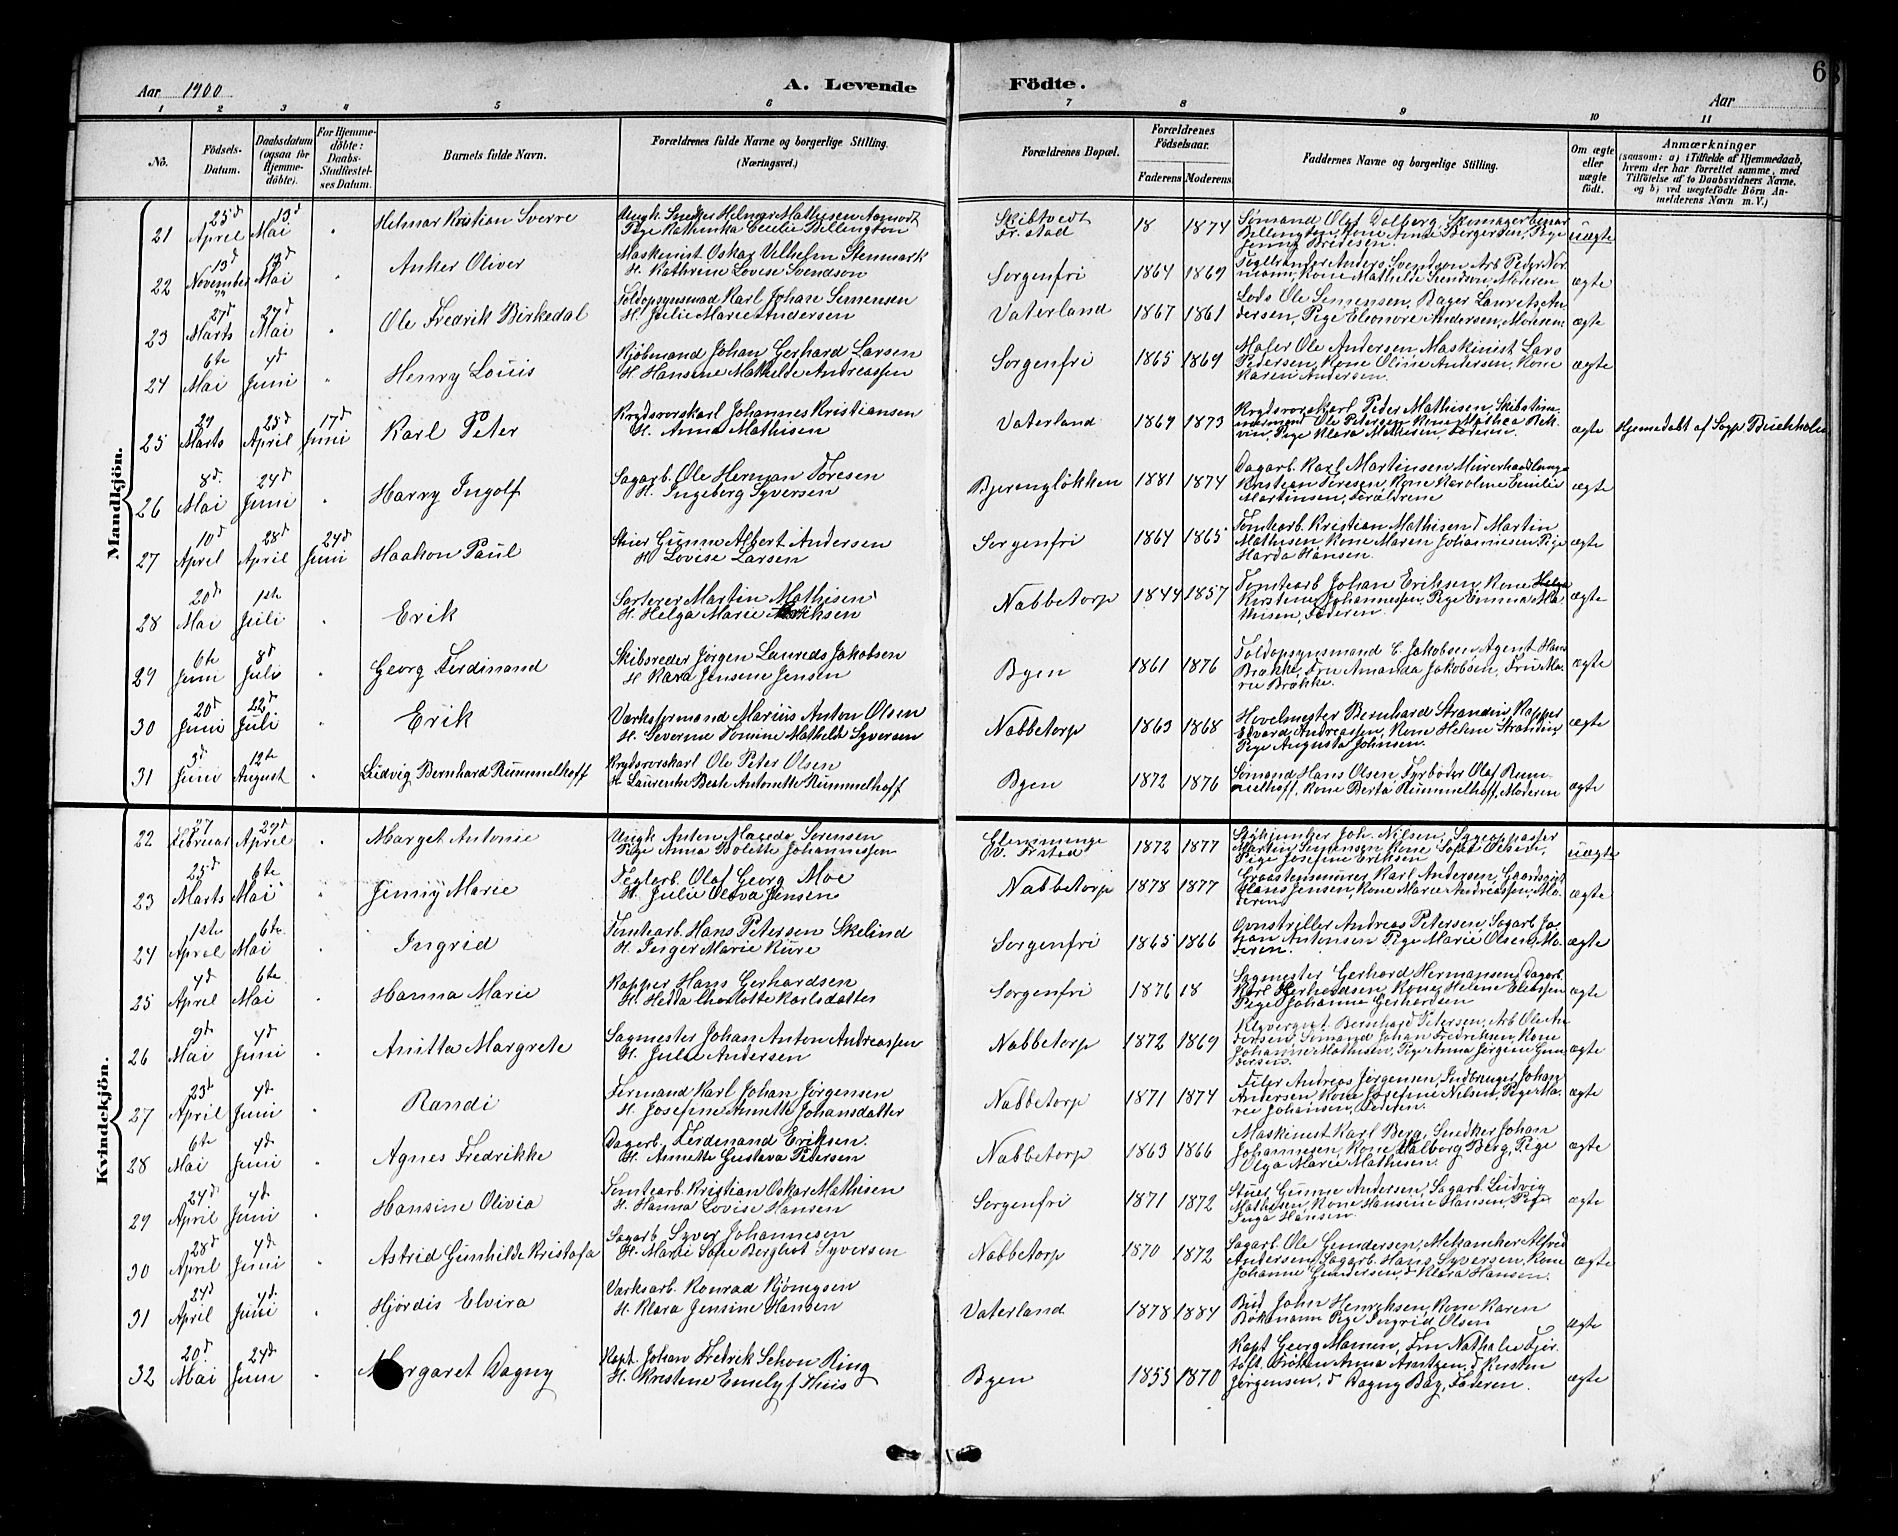 6
Aar 1900
A. Levende
Födte.
Aar
1 2 3 4 5 6 7 8 9 10 11
No.
Födsels-Datum.
Daabsdatum (ogsaa for Hjemme-döbte).
For Hjemme-döbte: Daabs-Stadfæstel-ses Datum.
Barnets fulde Navn.
Forældrenes fulde Navne og borgerlige Stilling. (Næringsvei.)
Forældrenes Bopæl.
Forældrenes Födselsaar.
Faderens Moderens
Faddernes Navne og borgerlige Stilling.
Om ægte eller uægte födt.
Anmærkninger
(saasom: a) i Tilfælde af Hjemmedaab, hvem der har forrettet samme, med Tilföielse af to Daabsvidners Navne, og b) ved uegtefödte Börn An-melderens Navn m. V.)
Mandkjön.
21 25d April 13d Mai Helmar Kristian Sverre
Ungk. Snedker Helmer Mathisen Aamodt
Pige Kathinka Cecilie Billington
Skibtvedt Fr.stad 18 1874
Sömand Olaf Dalberg, Skomager Einar
Billington, Kone Anne Bergersen, Pige
Jenny Bredesen uægte
22 13d November 99 13d Mai Anker Oliver
Maskinist Oskar Vilhelm Stenmark
H. Kathrine Lovise Svendsen
Sorgenfri 1864 1869
Anders Svendsen Arb Peder Nor
mann, Kone Mathilde Svendsen, Moderen ægte
23 27d Marts 27d Mai Ole Fredrik Birkedal
Toldopsynsmad Karl Johan Simensen
H. Julie Marie Andersen
Vaterland 1867 1861
Lods Ole Simensen, Bager Laurets An
dersen, Pige Eleonore Andersen, Moderen ægte
24 6te Mai 4d Juni Henry Louis
Kjöbmand Johan Gerhard Larsen
H. Hansine Mathilde Andreassen
Sorgenfri 1865 1869
Maler Ole Andersen Maskinist Lars
Pedersen, Kone Oline Andersen, Kone
Karen Andersen ægte
25 29 Marts 25d April 17d Juni Karl Peter
Krydsvorskarl Johannes Kristiansen
H. Anna Mathisen
Vaterland 1869 1873
Krydsvorskarl Peder Mathisen Skibstöm
mermand Ole Petersen Kone Mathea Rek
vin, Pige Klara Mathisen, Faderen ægte
Hjemmedöbt af Sogp. Buchholm
26 8d Mai 24d Juni Harry Ingolf
Sagarb. Ole Herman Töresen
H. Ingeborg Syversen
Bjerengløkken 1881 1874
Dagarb. Karl Martinsen, Murerhandlanger
Kristian Töresen, Kone Karoline Emilie
Martinsen, Forældrene ægte
27 10d April 28d April 24d Juni Haakon Paul
Stuer Gunne Albert Andersen
H Lovise Larsen
Sorgenfri 1864 1865
Tomtearb. Kristian Mathisen d Martin
Mathisen, Kone Maren Johannesen, Pige
Harda Hansen ægte
28 20d Mai 1ste Juli Erik
Sorterer Martin Mathisen
H. Helga Marie Eriksen
Nabbetorp 1844 1857
Tomtearb Johan Eriksen, Kone
Kirstine Johannessen, Pige Emma Ma
thisen, Faderen ægte
29 6te Juni 8d Juli Georg Ferdinand
Skibsreder Jörgen Laureds Jakobsen
H Kara Jensine Jensen
Byen 1861 1876
Toldopsynsmand C. Jakobsen, Agent Hans
Brække, Fru Amanda Jakobsen, Fru Ma
rie Brække ægte
30 20d Juni 22d Juli Erik
Værksformand Marius Anton Olsen
H. Severine Tomine Mathilde Syversen
Nabbetorp 1863 1868
Hövelmester Bernhard Strandin Kapper
Edvard Andreassen, Kone Helene Strandin
Pige Augusta Johnsen ægte
31 3d Juni 12te August Ludvig Bernhard Rummelhoff
Krydsvorskarl Ole Peter Olsen
H Laurentze Beate Antonette Rummelhoff
Byen 1872 1876
Sömand Hans Olsen, Fyrböder Olaf Rum
melhoff, Kone Berta Rummelhoff, Moderen ægte
Kvindekjön.
22 27 Februar 29d April Marget Antonie
Ungk. Anton Maredo Sörensen
Pige Anna Bolette Johannessen
Glemminge v. Frstad 1872 1877
Joh. Nilsen, Sygeoppasser
Martin Sörensen Kone Sofie
Pige Josefine Eriksen uægte
23 25d Marts 6te Mai Jenny Marie
Teglarb. Olaf Georg Moe
H. Julie Olava Jensen
Nabbetorp 1878 1877
Graastensmurer Karl Andersen, Gaardsgut
Hans Jensen, Kone Marie Andreassen, Mo
deren ægte
24 1ste April 6te Mai Ingrid
Tomtearb. Hans Petersen Skelind
H. Inger Marie Kure
Sorgenfri 1865 1866
Ovnstriller Andreas Petersen, Sagarb Jo
han Antonsen Pige Marie Olsen, Mo
deren ægte
25 4d April 6te Mai Hanna Marie
Kapper Hans Gerhardsen
H. Hedda Charlotte Karlsdatter
Sorgenfri 1876 18
Sagmester Gerhard Hermansen, Dagarb.
Karl Gerhardsen, Kone Helene Eliassen
Pige Johanne Gerhardsen ægte
26 9d Mai 4d Juni Anitta Margrete
Sagmester Johan Anton Andreassen
H. Julie Andersen
Nabbetorp 1872 1869
Bernhard Petersen, Arb Ole An
dersen, Sömand Johan Fredriksen, Kone
Johanne Mathisen, Pige Anna Jörgine Gun
dersen ægte
27 23d April 4d Juni Randi
Formand Karl Johan Jörgensen
H. Josefine Annette Johansdatter
Nabbetorp 1871 1874
Filer Andreas Jörgensen, Indbringer Johan
Andersen, Kone Josefine Nilsen, Pige Ma
rie Johansen, Faderen ægte
28 6te Mai 4d Juni Agnes Fredrikke
Dagarb. Ferdinand Eriksen
H. Annette Gustava Petersen
Nabbetorp 1863 1866
Maskinist Karl Berg, Snedker Johan
Johannesen, Kone Valborg Berg, Pige
Olga Marie Mathisen ægte
29 24d April 4d Juni Hansine Olivia
Tomtearb. Kristian Oskar Mathisen
H. Hanna Lovise Hansen
Sorgenfri 1871 1872
Stuer Gunne Andersen, Sagarb. Ludvig
Mathisen, Kone Hansine Hansen, Pige
Inga Hansen ægte
30 28d April 4d Juni Astrid Gunhilde Kristofa
Sagarb. Syver Johannesen
H. Marie Sofie Bergliot Syversen
Nabbetorp 1870 1872
Sagarb. Ole Gundersen, Mekaniker Alfred
Andersen, Sagarb. Hans Syversen, Kone
Johanne Gundersen, d Klara Hansen ægte
31 24d April 4d Juni Hjördis Elvira
Værksarb. Konrad Kjönigsen
H. Klara Jensine Hansen
Vaterland 1878 1884
Bud John Henriksen, Kone Karen
Bökmann Pige Ingrid Olsen ægte
32 20d Mai 24d Juni Margaret Dagny
Kapt. Johan Fredrik Schou Ring
H. Kristine Emely f. Huis
Byen 1855 1870
Kapt Georg Mamen, Fru Nathalie Fjer
toft, Fröken Anna Arntzen, d Kirsten
Jörgensen, d Dagny Bay, Faderen ægte